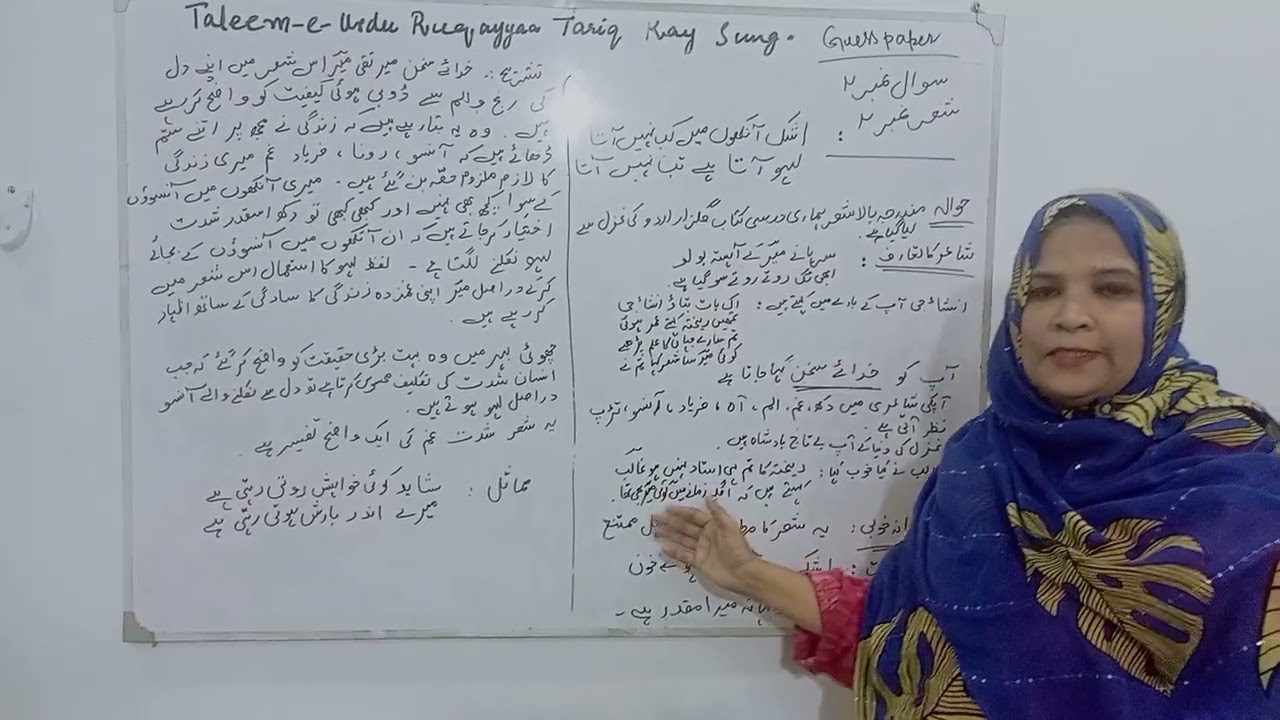 Taleem-e-Urdu Ruqayyaa Tariq Kay Sung.
Guess paper
سوال نمبر ۲
شعر نمبر ۲
اشک آنکھوں میں کب نہیں آتا
لہو آتا ہے تب نہیں آتا
حوالہ مندرجہ بالا شعر ہماری درسی کتاب گلزار اردو کی غزل سے
لیا گیا ہے۔
شاعر کا تعارف : سرہانے میر کے آہستہ بولو
ابھی تک روتے روتے سو گیا ہے۔
انشا جی آپ کے بارے میں کہتے ہیں : اک بات بتاؤ انشا جی
تمھیں ریختہ کہتے عمر ہوئی
تم سارے جہاں کا علم پڑھے
کوئی میر سا شعر کہا تم نے
آپ کو خدائے سخن کہا جاتا ہے
آپکی شاعری میں دکھ، غم، الم، آہ، فریاد، آنسو، تڑپ
نظر آتی ہے۔
غزل کی دنیا کے آپ بے تاج بادشاہ ہیں۔
نے کیا خوب کہا : ریختہ کا تم ہی استاد نہیں ہو غالب
کہتے ہیں کہ اگلے زمانے میں کوئی میر بھی تھا۔
خوبی : یہ شعر کا ممتنع
خون
میرا مقدر ہے۔
تشریح :۔ خدائے سخن میر تقی میر اس شعر میں اپنے دل
کی رنج و الم سے ڈوبی ہوئی کیفیت کو واضح کر رہے
ہیں۔ وہ یہ بتا رہے ہیں کہ زندگی نے مجھ پر اتنے ستم
ڈھائے ہیں کہ آنسو، رونا، فریاد غم میری زندگی
کا لازم ملزوم حصّہ بن گئے ہیں۔ میری آنکھوں میں آنسوؤں
کے سوا کچھ بھی نہیں اور کبھی کبھی تو دکھ اسقدر شدت
اختیار کر جاتے ہیں کہ ان آنکھوں میں آنسوؤں کے بجائے
لہو نکلنے لگتا ہے۔ لفظ لہو کا استعمال اس شعر میں
کرکے دراصل میر اپنی غمزدہ زندگی کا سادگی کے ساتھ اظہار
کر رہے ہیں۔
چھوٹی بہر میں وہ بہت بڑی حقیقت کو واضح کر گئے کہ جب
انسان شدت کی تکلیف محسوس کرتا ہے تو دل سے نکلنے والے آنسو
دراصل لہو ہوتے ہیں۔
یہ شعر شدت غم کی ایک واضح تفسیر ہے۔
مماثل : شاید کوئی خواہش روتی رہتی ہے
میرے اندر بارش ہوتی رہتی ہے